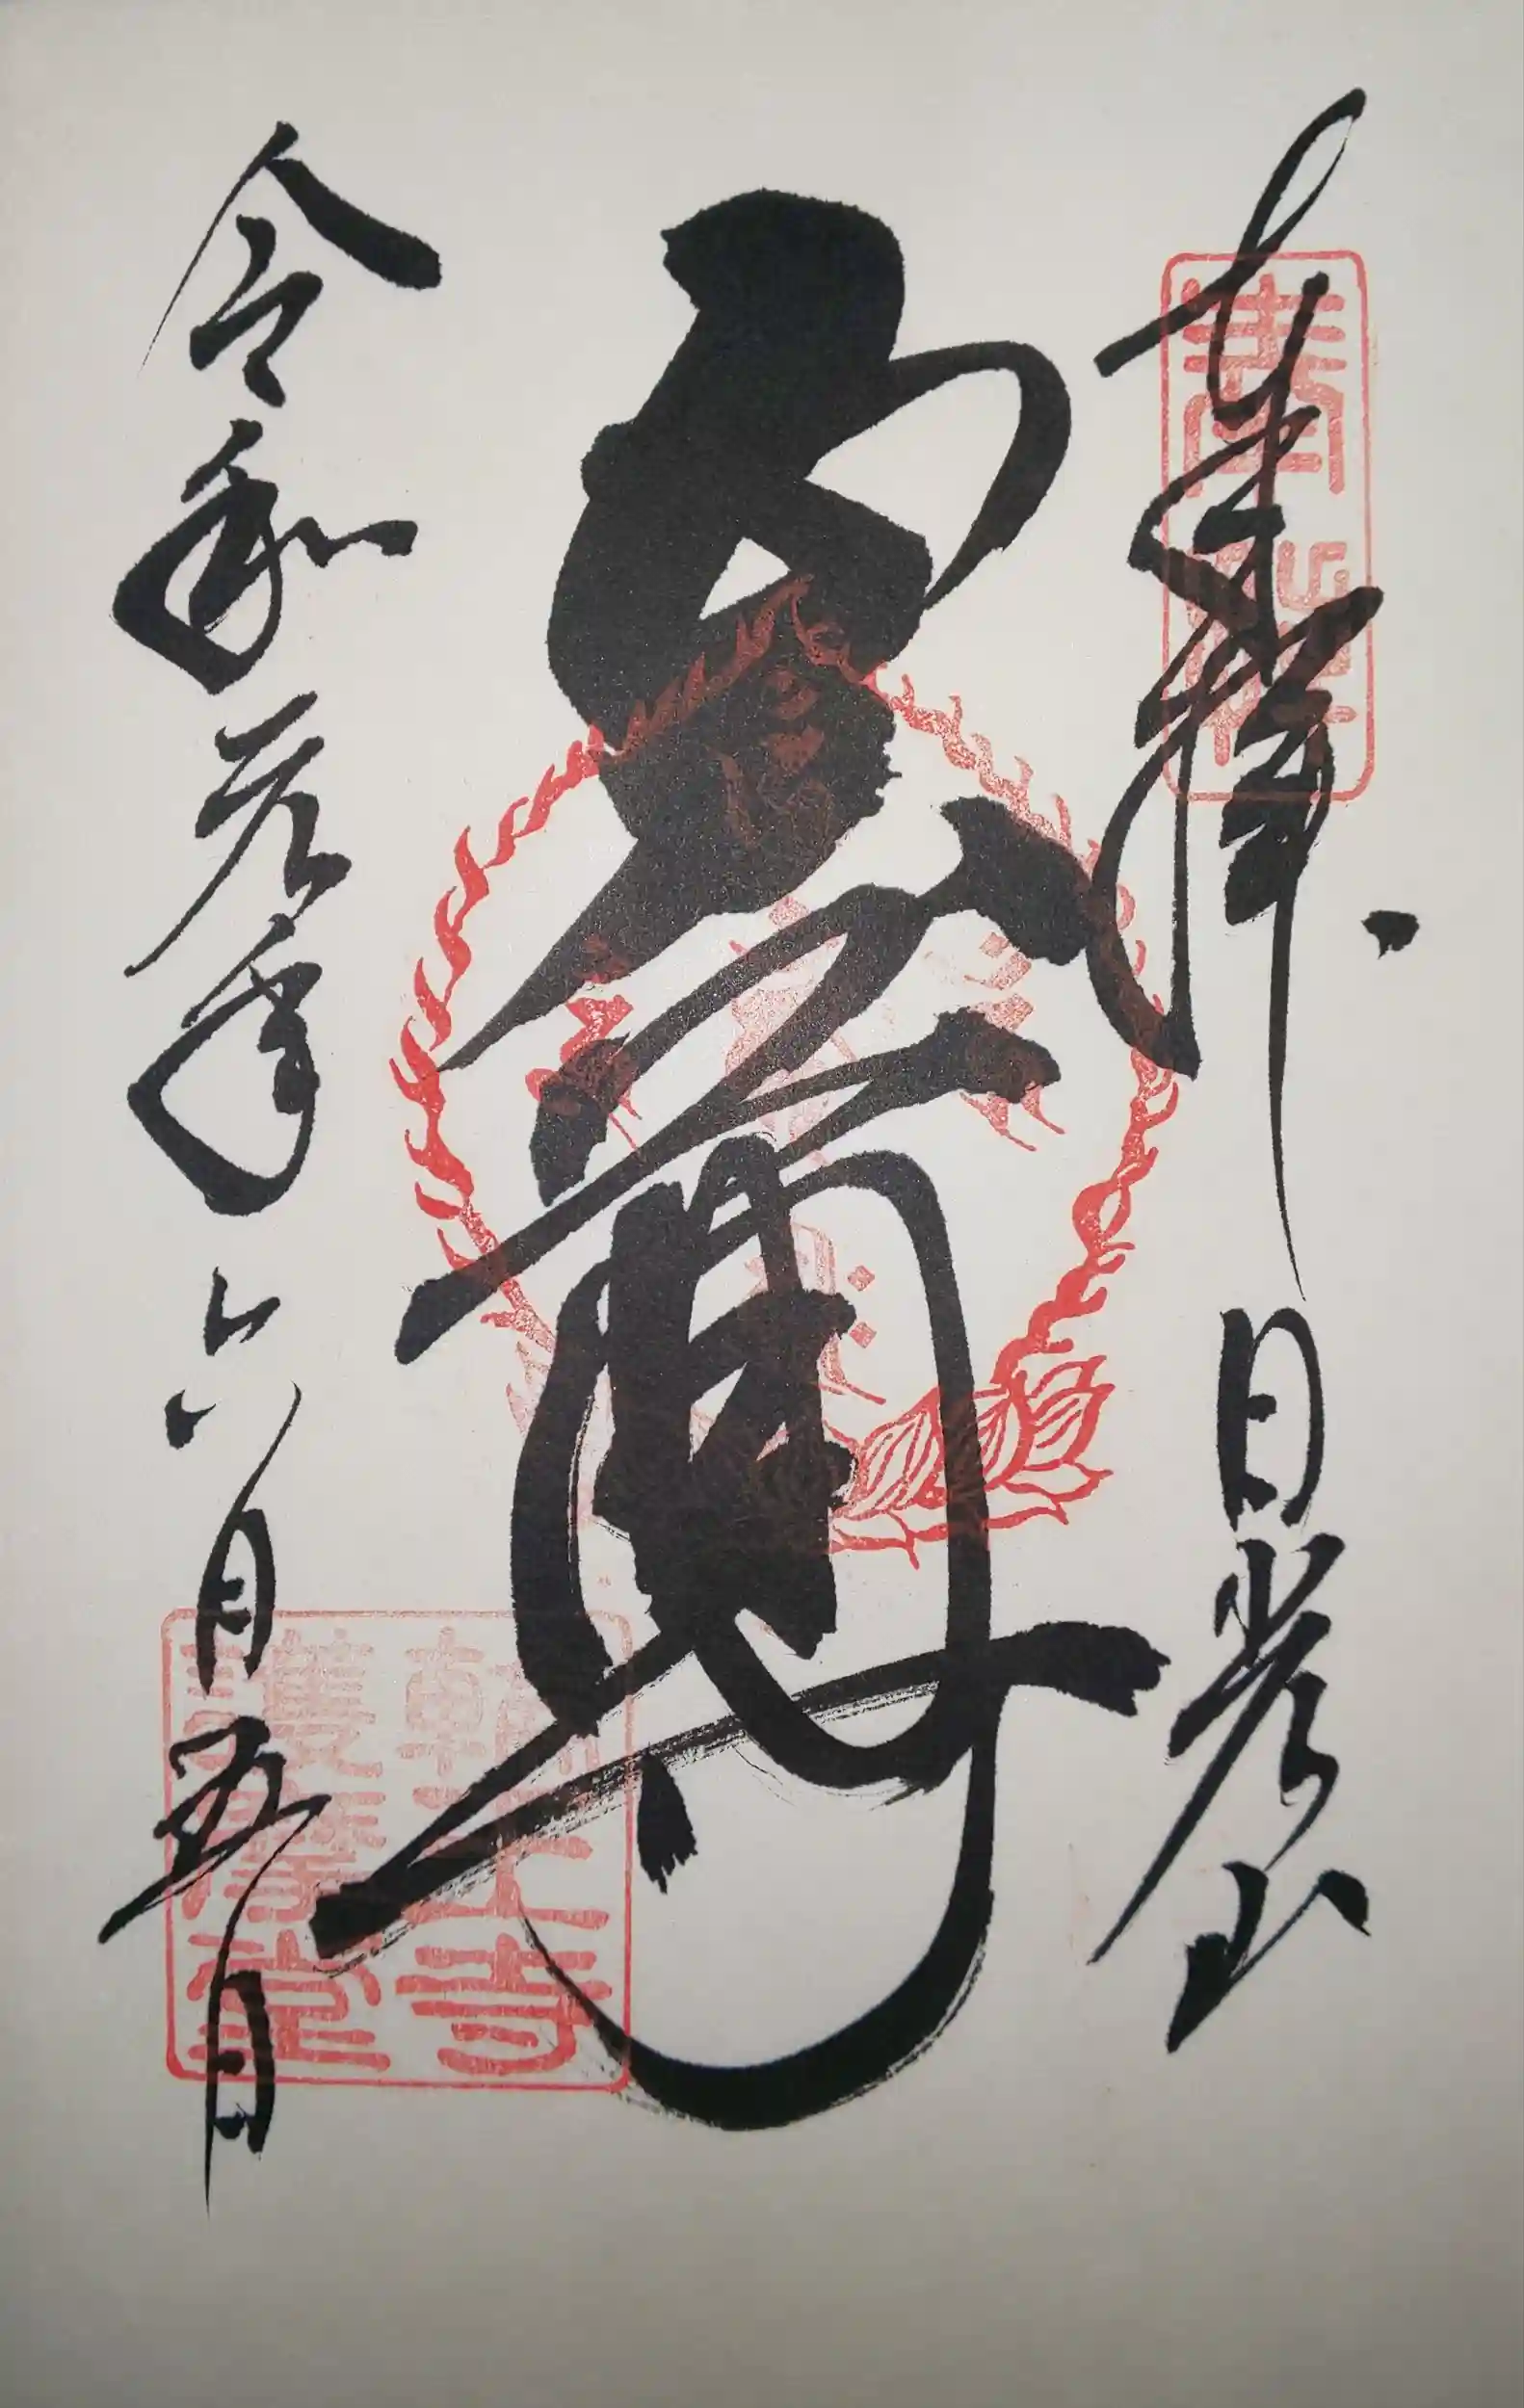 奉拝
日光山
五大尊
令和元年六月五日
輪王寺
護摩堂